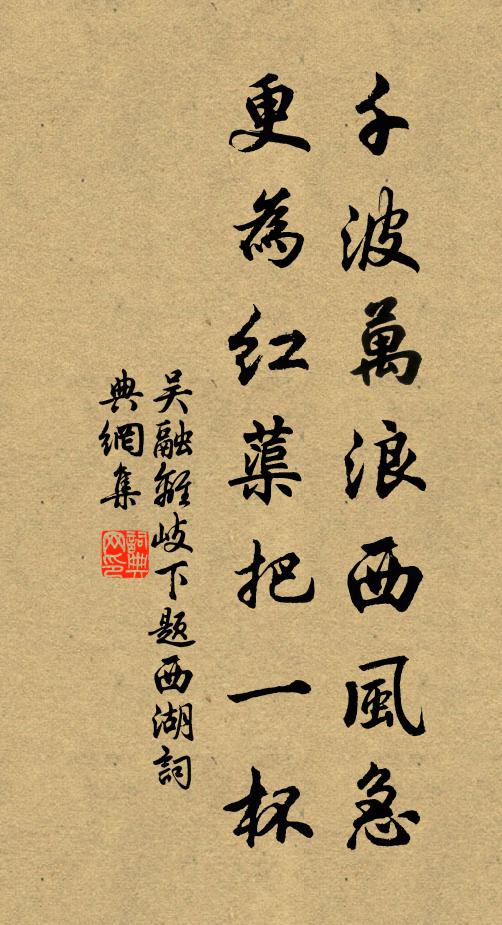 千波萬浪西風急
更為紅蕖把一杯
吳融離岐下題西湖詞
典網集
詞典
网印